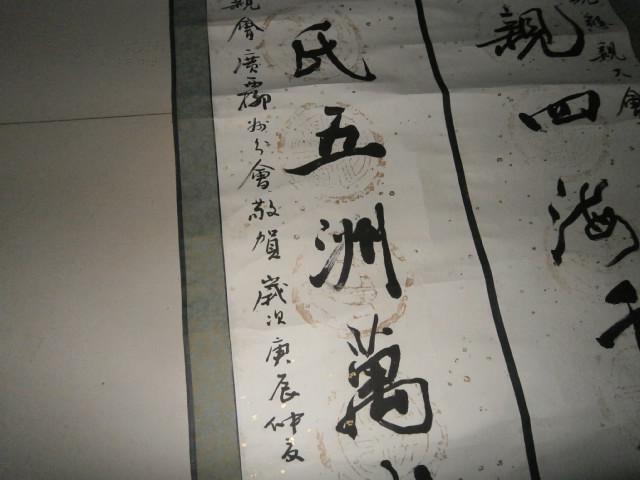 親大會
親四海千
氏五洲萬
親會廣霸州分會敬賀 歲次庚辰仲夏